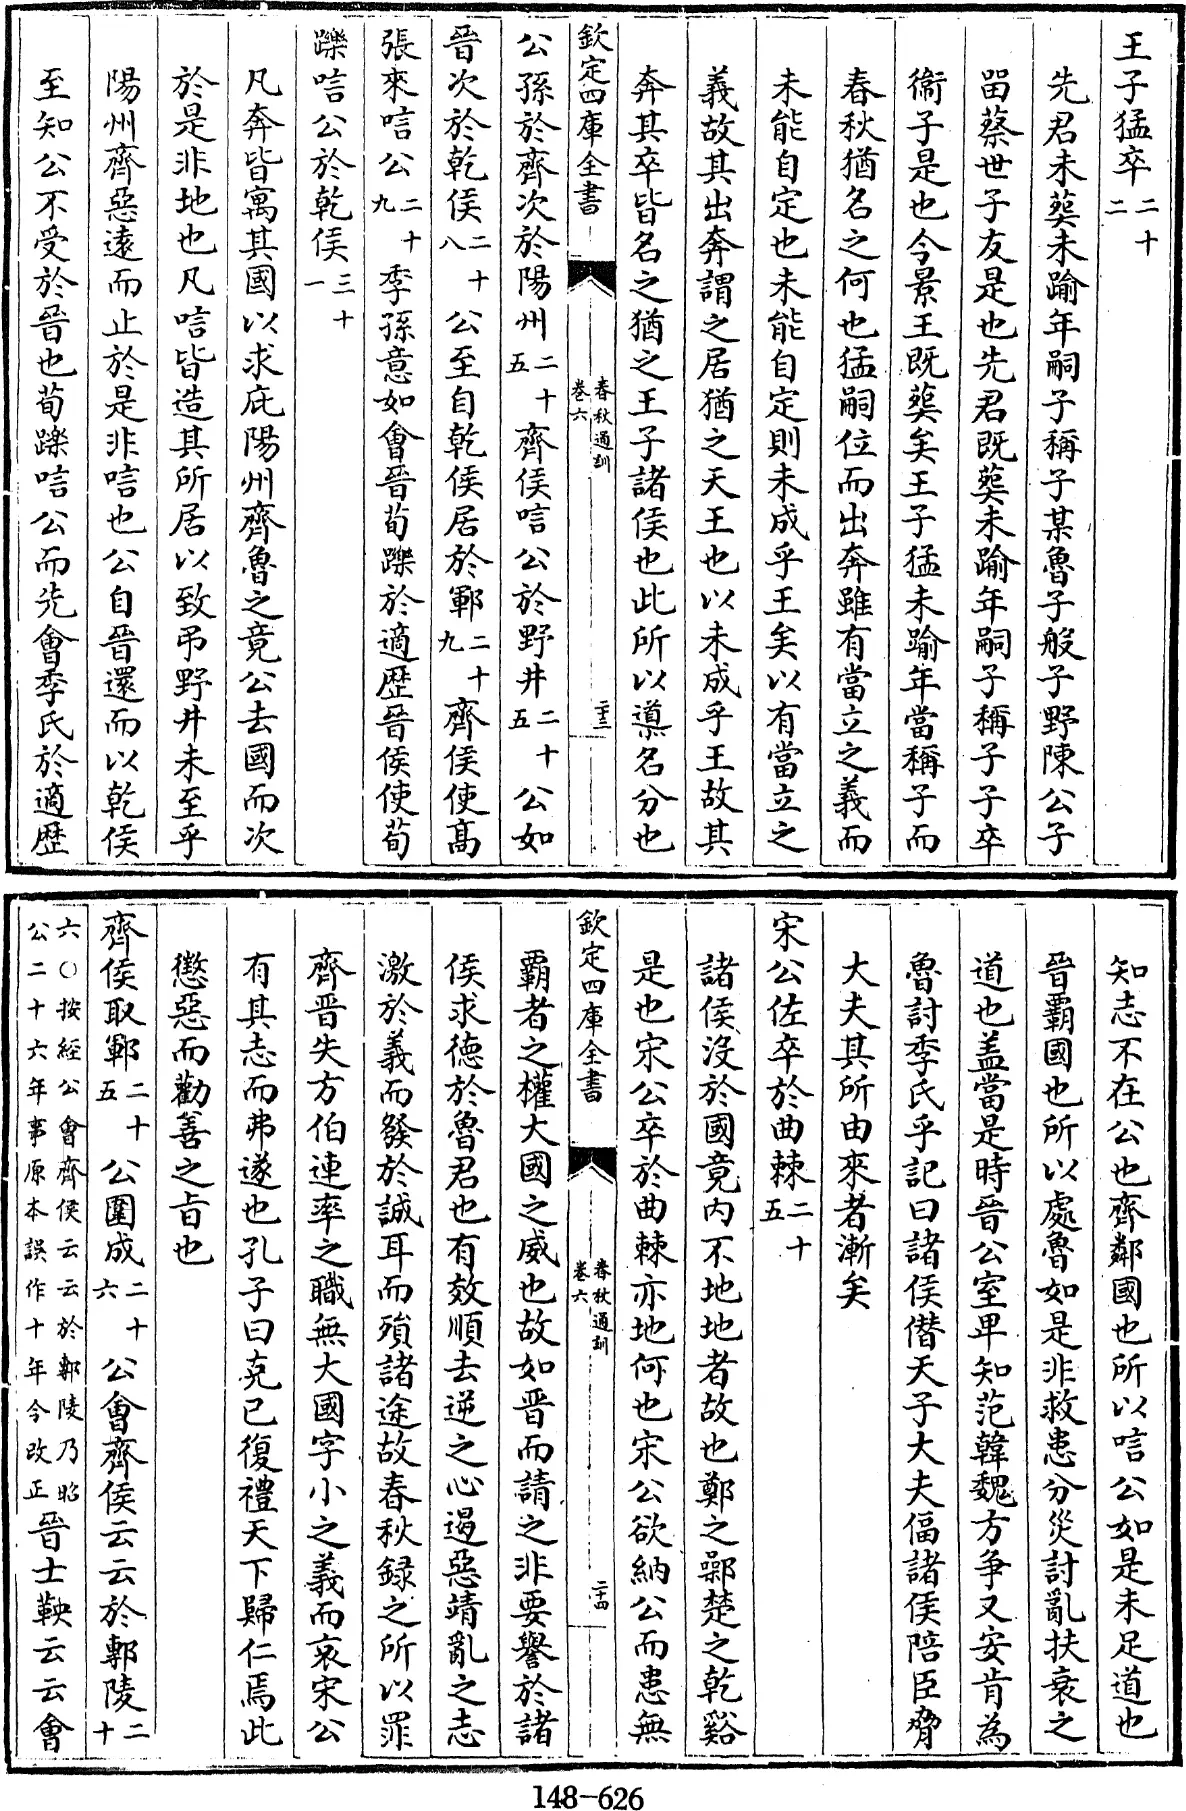 王子猛卒二十二
先君未葬未踰年嗣子稱子某魯子般子野陳公子
留蔡世子友是也先君既葬未踰年嗣子稱子子卒
衞子是也今景王既葬矣王子猛未踰年當稱子而
春秋猶名之何也猛嗣位而出奔雖有當立之義而
未能自定也未能自定則未成乎王矣以有當立之
義故其出奔謂之居猶之天王也以未成乎王故其
奔其卒皆名之猶之王子諸侯也此所以䆃名分也
欽定四庫全書 春秋通訓 卷六 二十三
公孫於齊次於陽州二十五 齊侯唁公於野井二十五 公如
晉次於乾侯二十八 公至自乾侯居於鄆二十九 齊侯使髙
張來唁公二十九 季孫意如會晉荀躒於適歷晉侯使荀
躒唁公於乾侯三十一
凡奔皆寓其國以求庇陽州齊魯之竟公去國而次
於是非地也凡唁皆造其所居以致弔野井未至乎
陽州齊惡逺而止於是非唁也公自晉還而以乾侯
至知公不受於晉也荀躒唁公而先會季氏於適歷
知志不在公也齊鄰國也所以唁公如是未足道也
晉霸國也所以處魯如是非救患分災討亂扶衰之
道也盖當是時晉公室卑知范韓魏方争又安肯為
魯討季氏乎記曰諸侯僭天子大夫偪諸侯陪臣脅
大夫其所由來者漸矣
宋公佐卒於曲棘二十五
諸侯没於國竟内不地地者故也鄭之鄵楚之乾谿
是也宋公卒於曲棘亦地何也宋公欲納公而患無
欽定四庫全書 春秋通訓 卷六 二十四
霸者之權大國之威也故如晉而請之非要譽於諸
侯求德於魯君也有效順去逆之心遏惡靖亂之志
激於義而發於誠耳而殞諸途故春秋録之所以罪
齊晉失方伯連率之職無大國字小之義而哀宋公
有其志而弗遂也孔子曰克已復禮天下歸仁焉此
懲惡而勸善之旨也
齊侯取鄆二十五 公圍成二十六 公會齊侯云云於鄟陵二十
六○按經公會齊侯云云於鄟陵乃昭公二十六年事原本誤作十年今改正 晉士鞅云云會
148-626